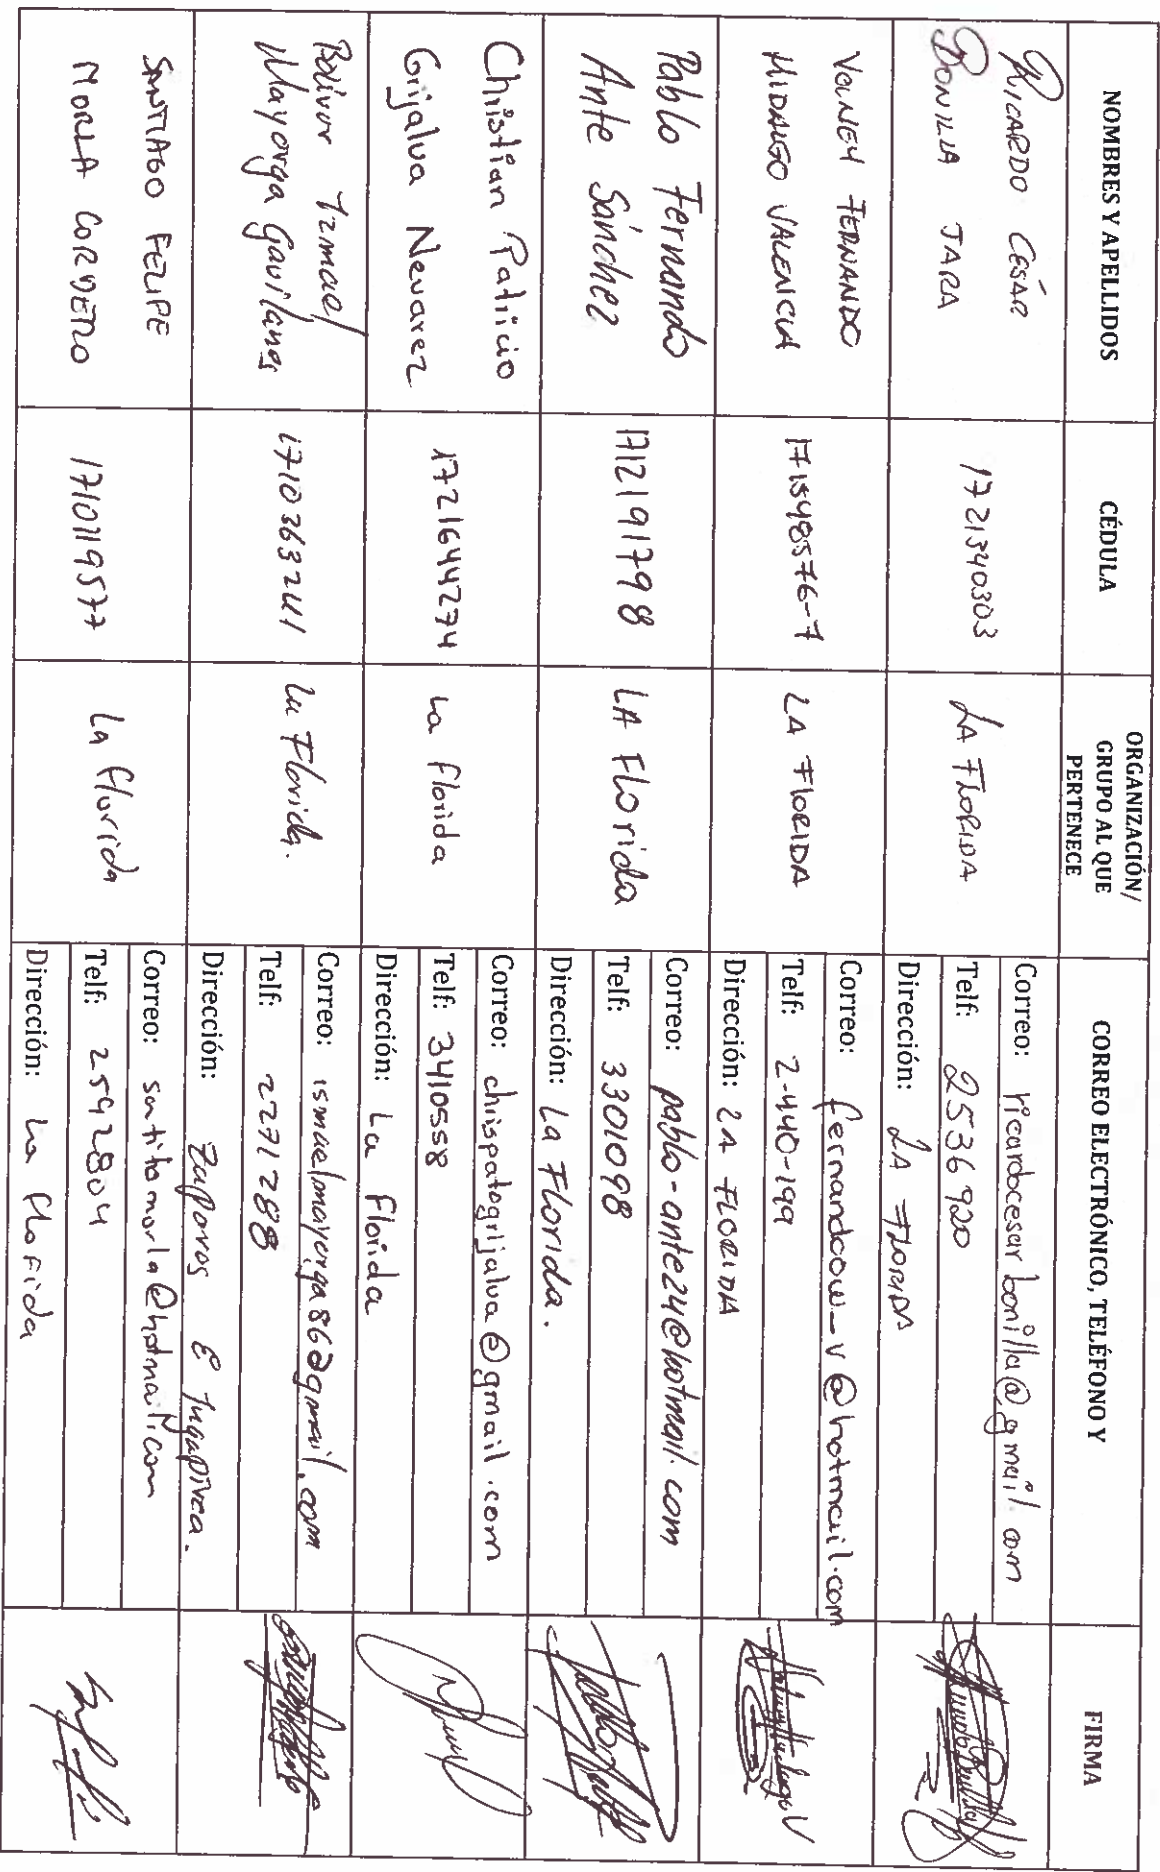 NOMBRES Y APELLIDOS
CÉDULA
ORGANIZACIÓN/
GRUPO AL QUE
PERTENECE
CORREO ELECTRÓNICO, TELÉFONO Y
FIRMA
RICARDO CÉSAR
BONILLA JARA
1721340303
LA FLORIDA
Correo: ricardocesarbonilla@gmail.com
Telf: 2536920
Dirección: LA FLORIDA
VOLNEY FERNANDO
HIDALGO VALENCIA
171548576-7
LA FLORIDA
Correo: fernandocow_v@hotmail.com
Telf: 2-440-199
Dirección: LA FLORIDA
Pablo Fernando
Ante Sánchez
1712191798
LA Florida
Correo: pablo-ante24@hotmail.com
Telf: 3301098
Dirección: La Florida.
Christian Patricio
Grijalva Nevarez
1721644274
La florida
Correo: chrispatogrijalva@gmail.com
Telf: 3410558
Dirección: La florida
Bolivar Izmael
Mayorga Gavilanes
1710363241
La Florida.
Correo: ismaelmayorga86@gmail.com
Telf: 2271288
Dirección: Zaporos E Ingapirca.
SANTIAGO FELIPE
MORLA CORDERO
1710119577
La florida
Correo: santitomorla@hotmail.com
Telf: 2592804
Dirección: La florida